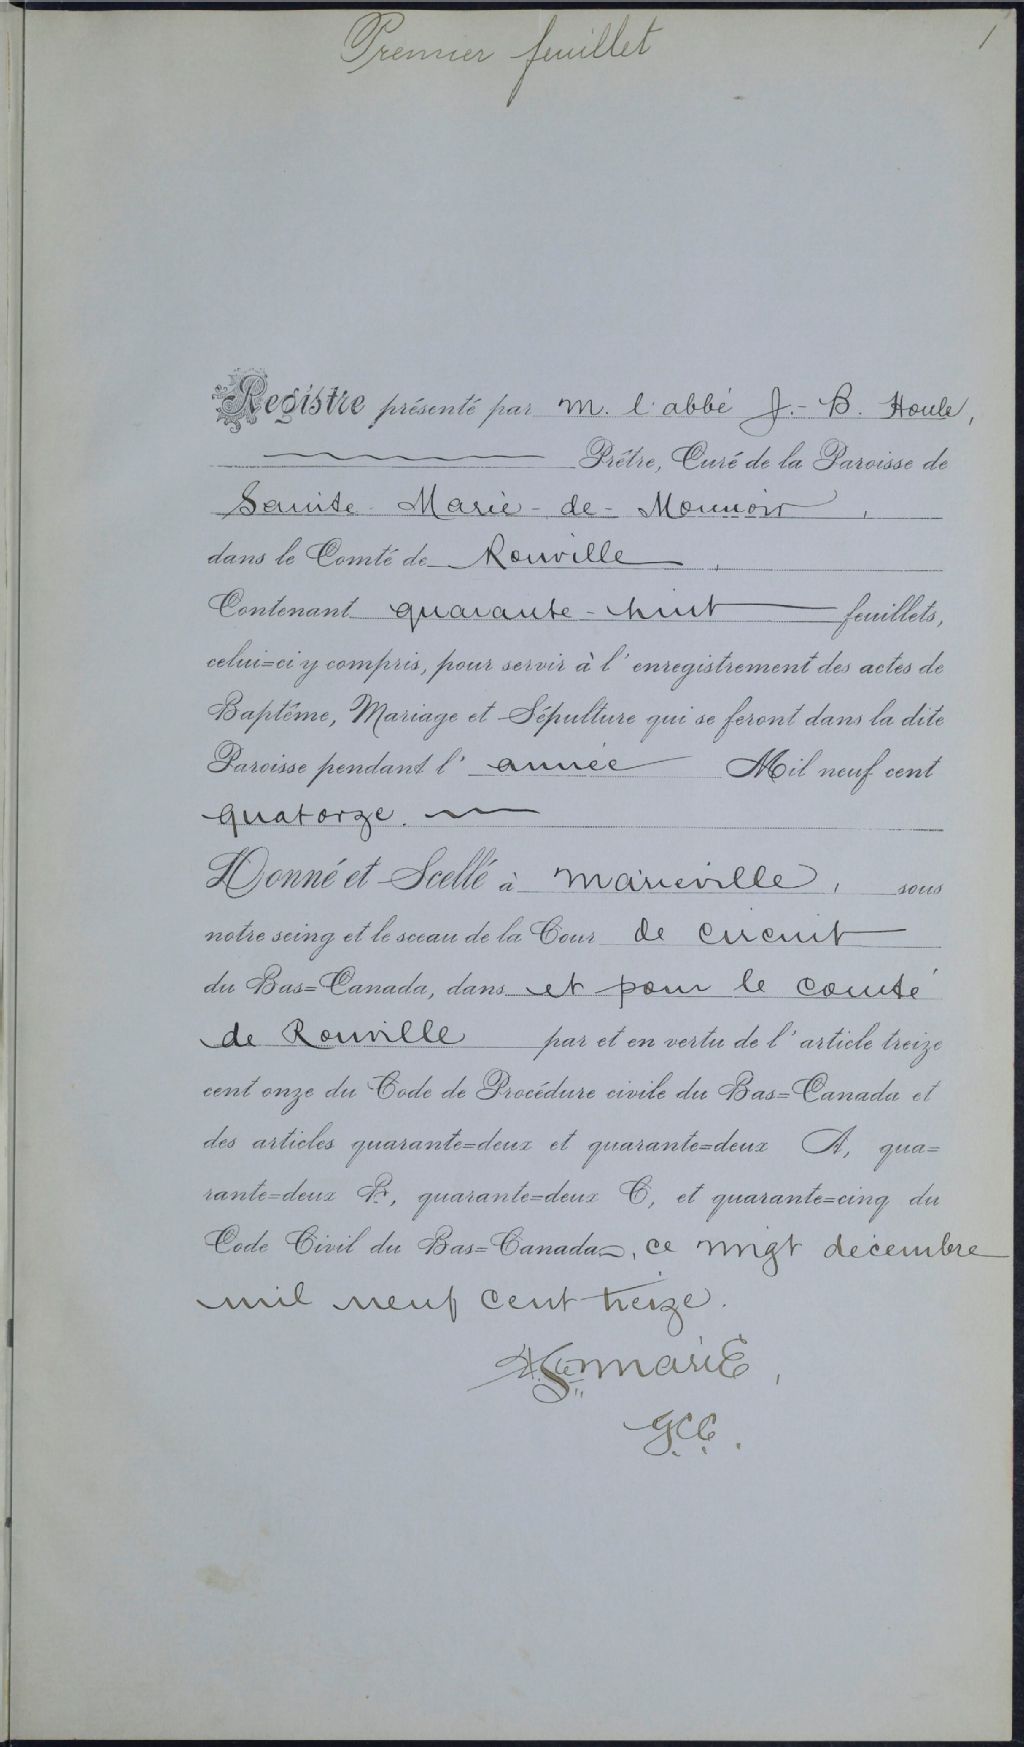 Premier feuillet
1
Registre présenté par M. l'abbé J.-B. Houle,
Prêtre, Curé de la Paroisse de
Sainte-Marie-de-Monnoir,
dans le Comté de Rouville,
Contenant quarante-huit feuillets,
celui=ci y compris, pour servir à l'enregistrement des actes de
Baptême, Mariage et Sépulture qui se feront dans la dite
Paroisse pendant l'année Mil neuf cent
quatorze.
Donné et Scellé à Marieville, sous
notre seing et le sceau de la Cour de circuit
du Bas=Canada, dans et pour le comté
de Rouville par et en vertu de l'article treize
cent onze du Code de Procédure civile du Bas=Canada et
des articles quarante=deux et quarante=deux A, qua=
rante=deux B, quarante=deux C, et quarante=cinq du
Code Civil du Bas=Canada, ce vingt décembre
mil neuf cent treize.
Ste Marie,
G.C.C.